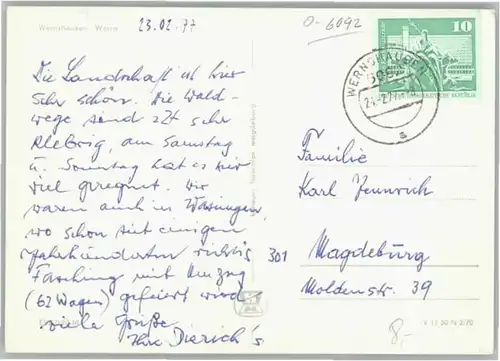 Wernshausen Werra
23.02.77
O-6092
10
WERNSHAUSEN
Die Landschaft ist hier
sehr schön. Die Wald-
wege sind zZt sehr
klebrig, am Samstag
u. Sonntag hat es hier
viel geregnet. Wir
waren auch in Wasungen,
wo schon seit einigen
Jahrhunderten richtig
Fasching mit Umzug
(62 Wagen) gefeiert wird
viele Grüße
Ihre Dierich's
Familie
Karl Jennrich
301 Magdeburg
Moldenstr. 39
V 11 50 N 2/70
8,-